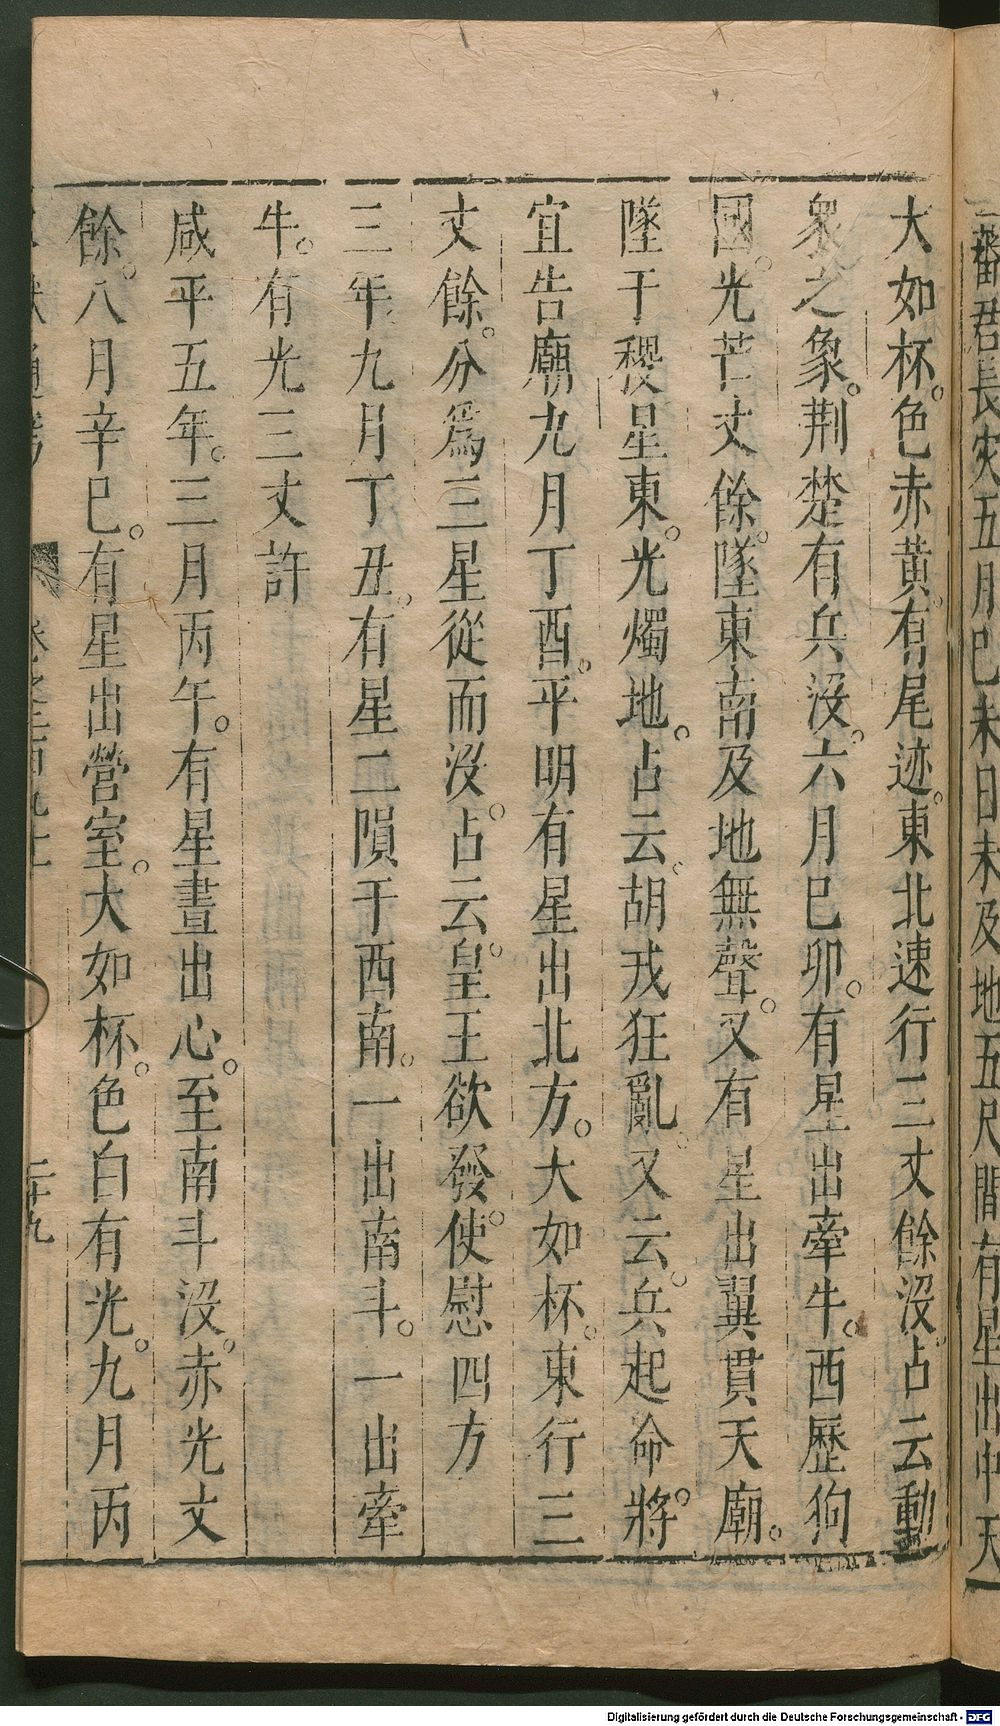 蕃君長災五月己未日未及地五尺間有星出中天
大如杯。色赤黃。有尾迹。東北速行三丈餘沒。占云動
衆之象。荆楚有兵沒。六月巳卯。有星出牽牛。西歷狗
國。光芒丈餘。墜東南及地無聲。又有星出翼貫天廟。
墜于稷星東。光燭地。占云。胡戎狂亂。又云。兵起命將。
宜告廟九月丁酉。平明有星出北方。大如杯。東行三
丈餘。分爲三星從而沒。占云。皇王欲發。使慰四方
三年九月丁丑。有星二隕于西南。一出南斗。一出牽
牛。有光三丈許
咸平五年。三月丙午。有星晝出心。至南斗沒。赤光丈
餘。八月辛巳。有星出營室。大如杯。色白有光。九月丙
二十九
Digitalisierung gefördert durch die Deutsche Forschungsgemeinschaft - DFG